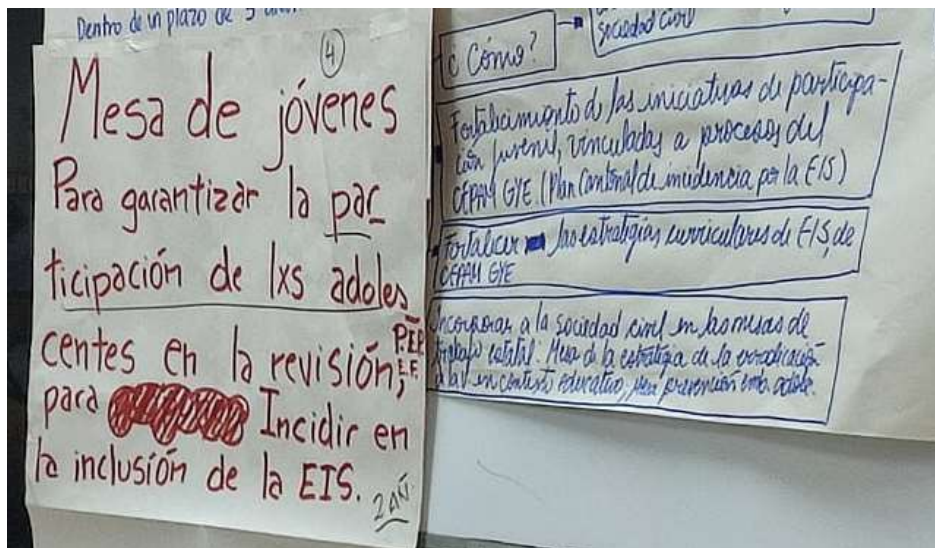 Dentro de un plazo de 5
4
Mesa de jóvenes
Para garantizar la par
ticipación de lxs adoles
centes en la revisión,
PEP
E.F.
para Incidir en
la inclusión de la EIS.
2 AÑ.
sociedad civil
¿Cómo?
Fortalecimiento de las iniciativas de participa-
ción juvenil, vinculadas a procesos del
CEPAM GYE. (Plan Cantonal de incidencia por la EIS)
Fortalecer las estrategias curriculares de EIS, de
CEPAM GYE
Incorporar a la sociedad civil en las mesas de
trabajo estatal. Mesa de la estrategia de la erradicación
de la V. en contexto educativo, prevención emb. adole.